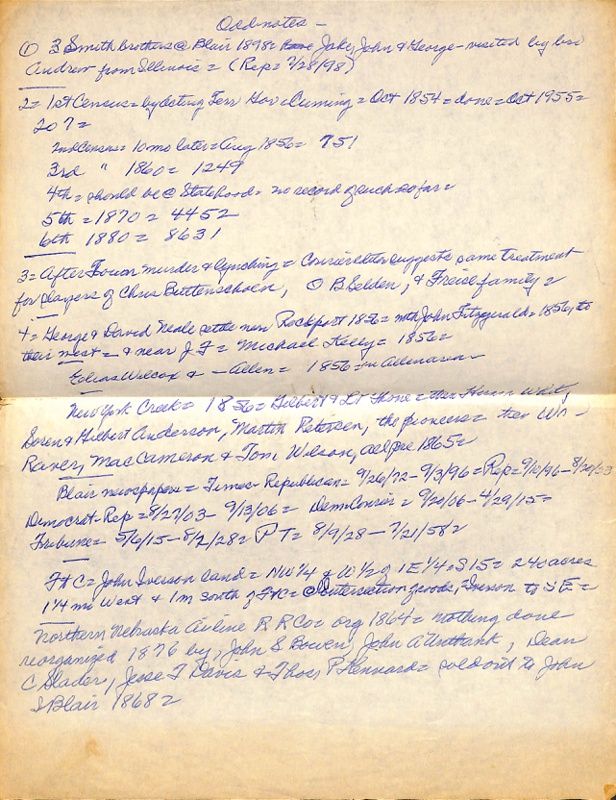 Odd notes -
① 3 Smith brothers @ Blair 1898 = Jake, John & George - visited by bro
Andrew from Illinois = (Rep = 7/28/98)
2 = 1st Census = by acting Terr Gov Cuming = Oct 1854 = done = Oct 1955 =
207 =
2nd Census = 10 mo later = Aug 1856 = 751
3rd " 1860 = 1249
4th = should be @ Statehood = no record of such so far =
5th = 1870 = 4452
6th 1880 = 8631
3 = After Iowan murder & lynching = Courier editor suggests same treatment
for slayers of Chris Buttenschoen, O B Selden, & Freise family =
4 = George & David Neale settle near Rockport 1856 = with John Fitzgerald = 1856, to
their west = & near J F = Michael Kelly = 1856 =
Wilcox & - Allen = 1856 =
New York Creek = 1856 = Gilbert & Lt Thone = then
Soren & Hilbert Anderson, Martin Petersen, the pioneers = then Wm -
Raver, MacCameron & Tom Wilson, all pre 1865 =
Blair newspapers = Times - Republican = 9/26/72 - 9/3/96 = Rep = 9/10/96 - 8/20/03
Democrat - Rep = 8/27/03 - 9/13/06 = Dem Courier = 9/20/06 - 4/29/15 =
Tribune = 5/6/15 - 8/2/28 = P T = 8/9/28 - 7/21/58 =
Ft C = John Iverson land = NW 1/4 & W 1/2 of 1E 1/4 = S15 = 240 acres
1 1/4 mi West & 1 m south of Ft C = @ Intersection of roads, Iverson to SE =
Northern Nebraska Airline R R Co = org 1864 = nothing done
reorganized 1876 by, John S Bowen, John A Unthank, Dean
C Slader, Jesse T Davis & Thos P Kennard = sold out to John
I Blair 1868 =